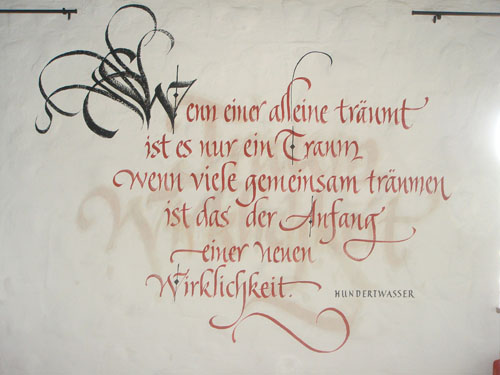 Wenn einer alleine träumt
ist es nur ein Traum
wenn viele gemeinsam träumen
ist das der Anfang
einer neuen
Wirklichkeit.
HUNDERTWASSER